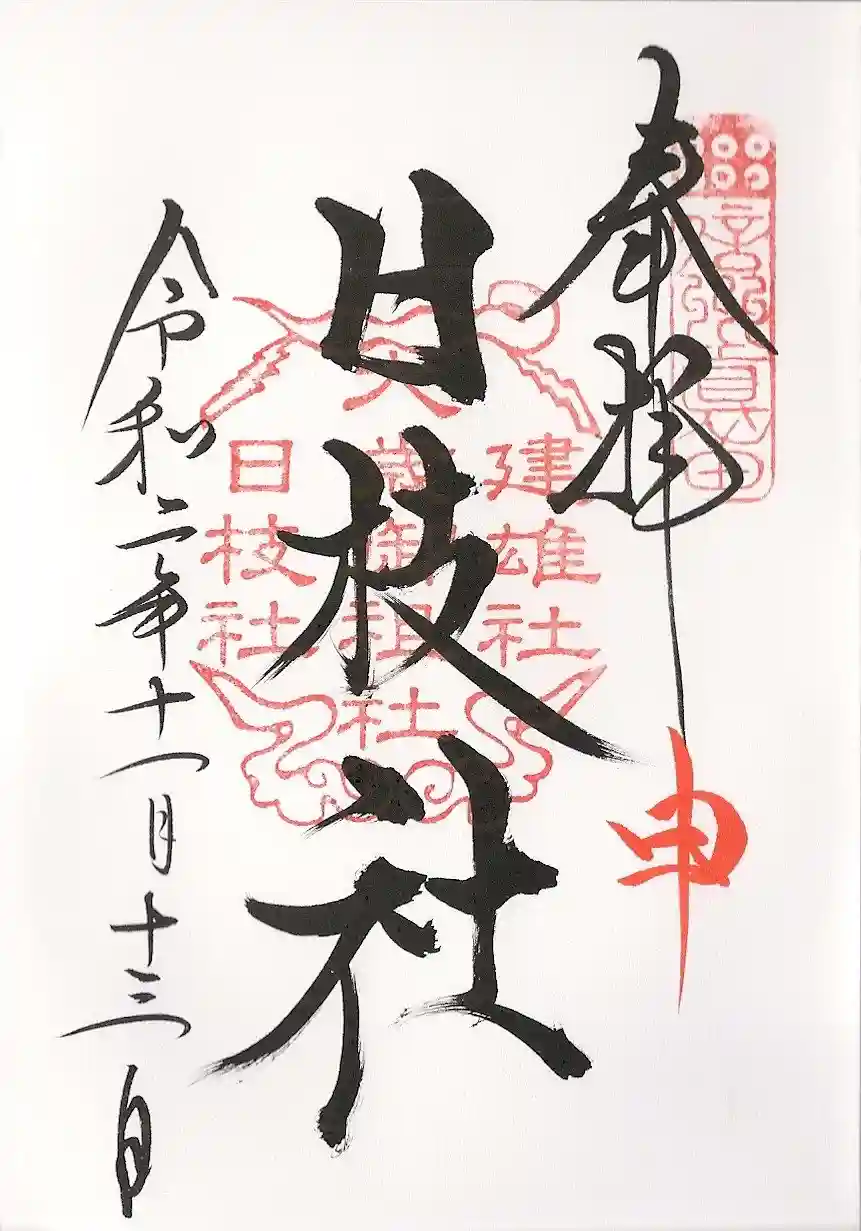 奉拝
申
日枝社
建雄社
大歳御祖社
日枝社
令和二年十一月十三日